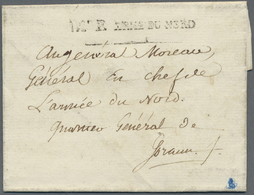 ARM. DU NORD
Au general Moreau,
Général En chef de
L'armée du Nord.
Quartier Général de